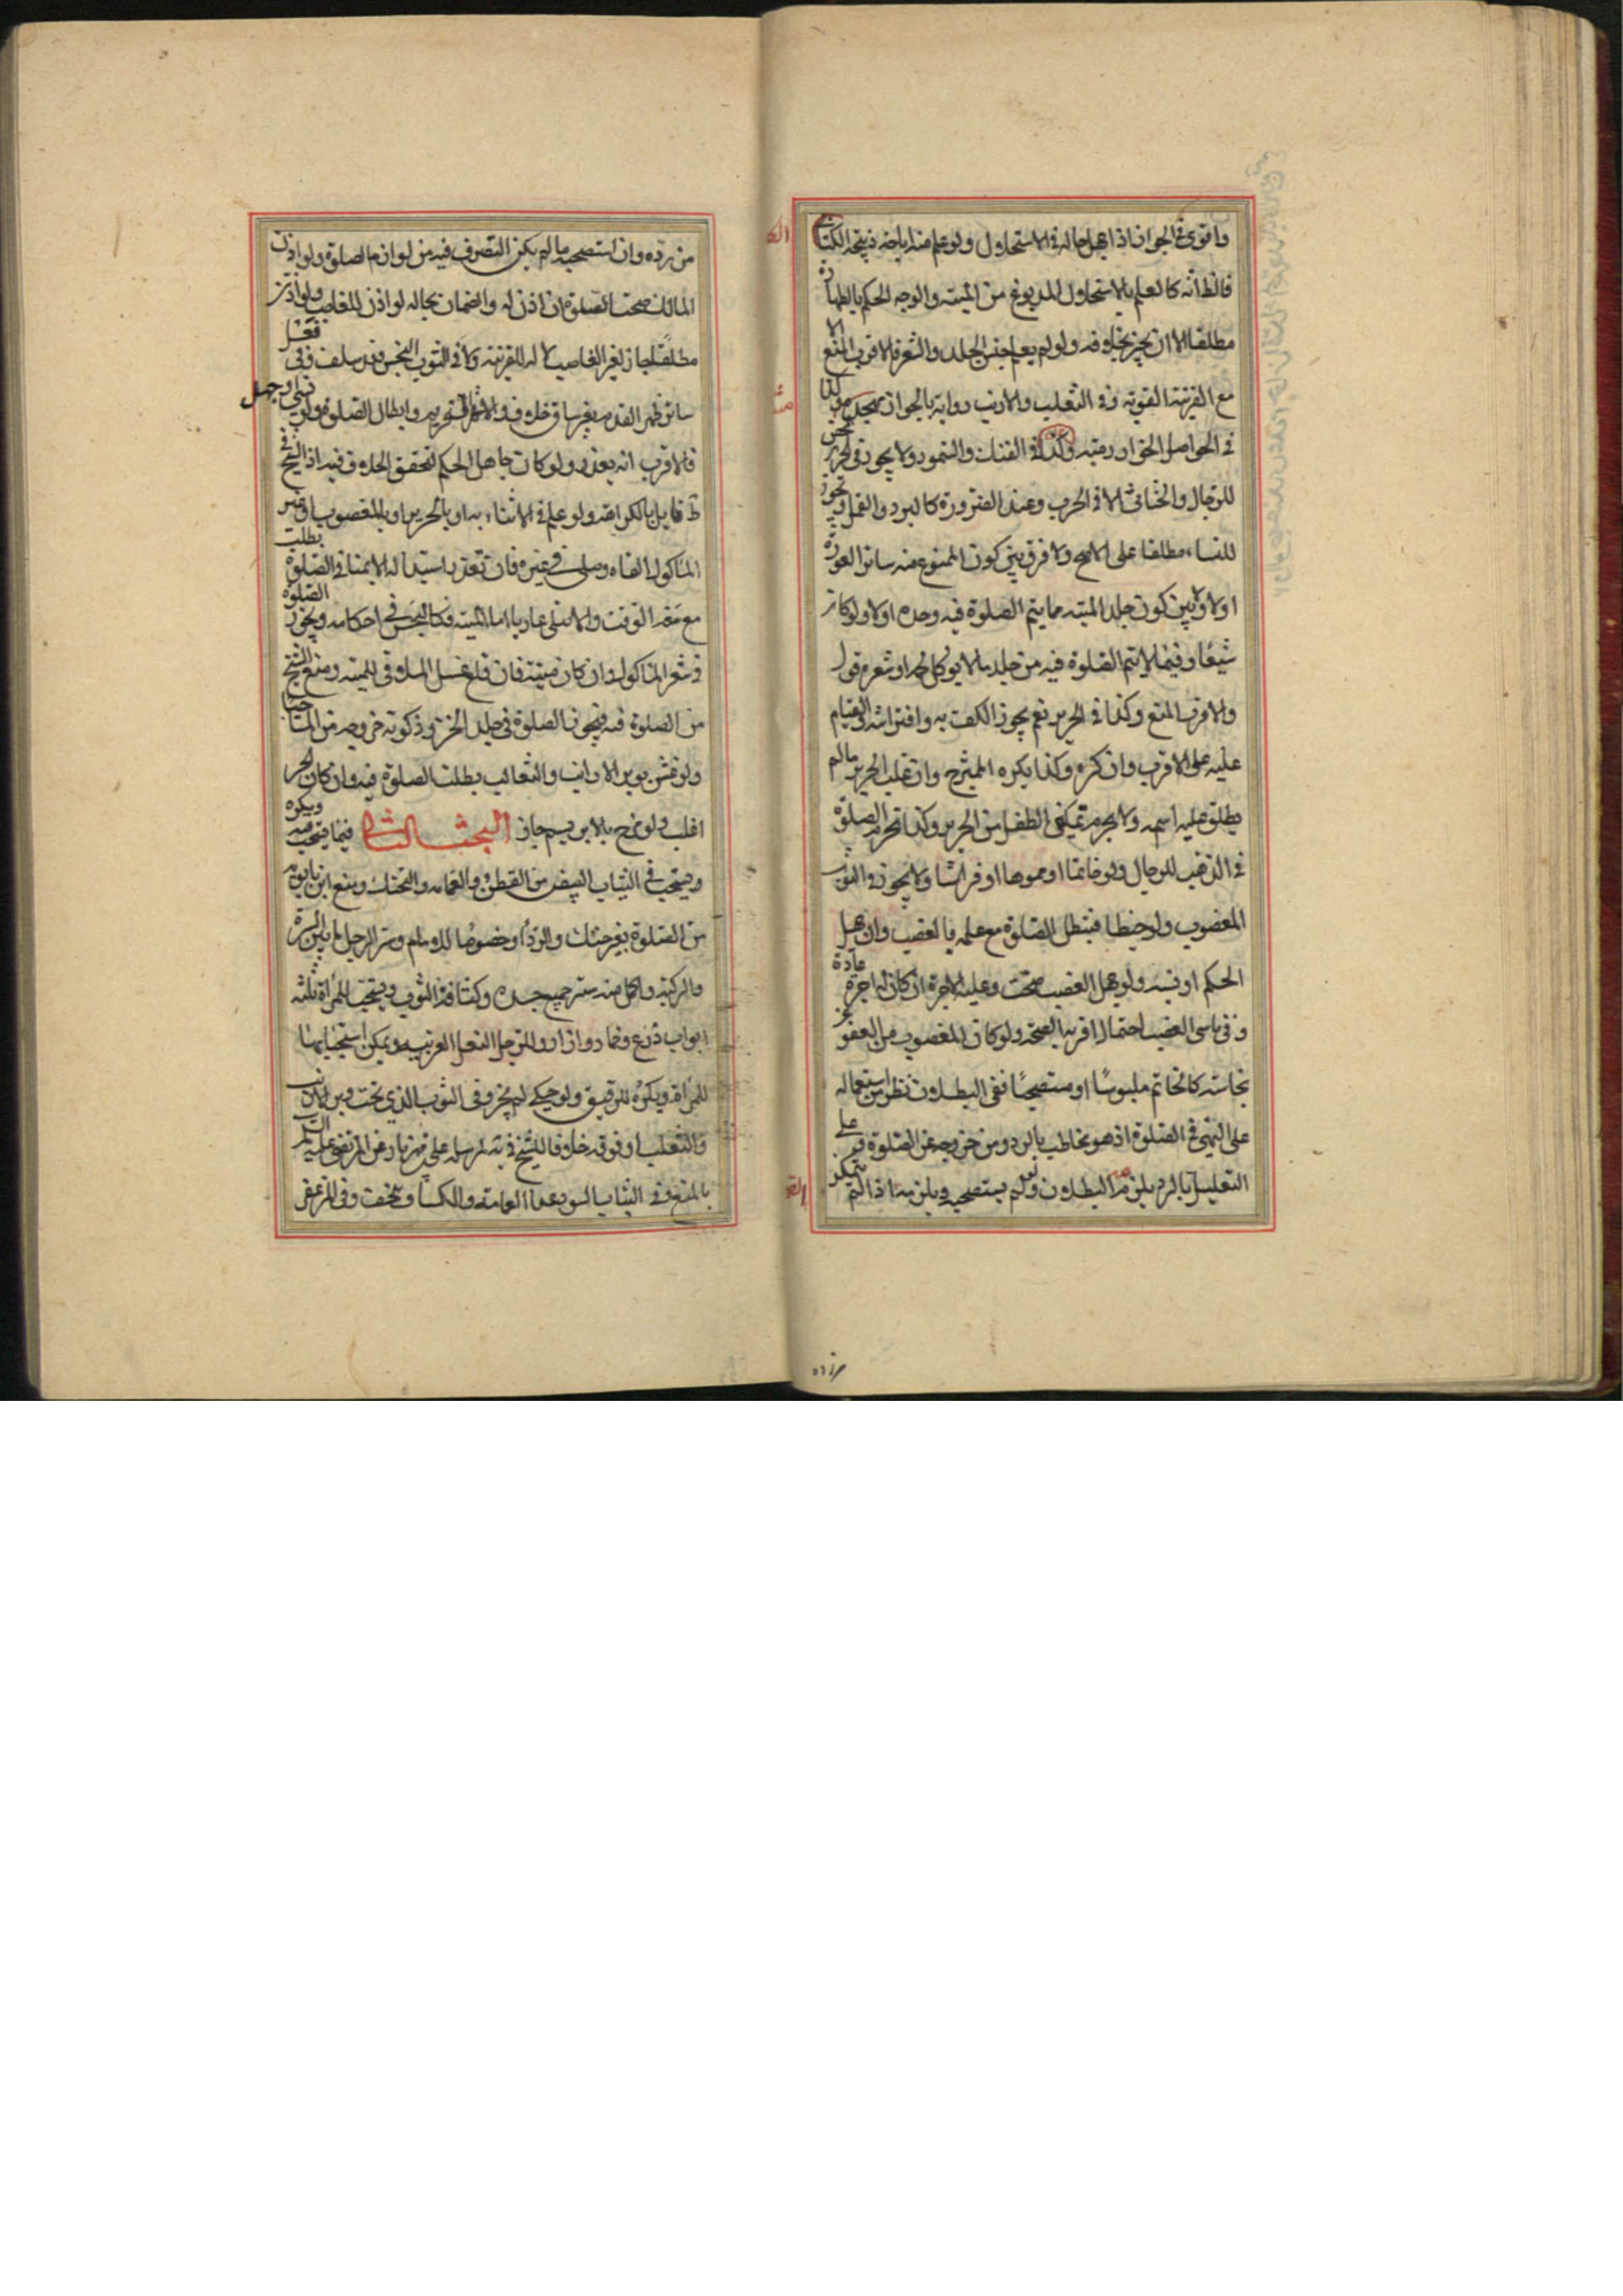 واقوى في الجواز اذا جهل حاله في الاستحلال ولو علم منه اباحة ذبيحة الكتابي
فالظ انه كالعلم بالاستحلال المدبوغ من الميتة والوجه الحكم بالطهارة
مطلقا الا ان يخبر بخلافه ولو لم يعلم جنس الجلد والشعر فالاقرب المنع الا
مع القرينة القوية وفي الثعلب والارنب رواية بالجواز مهجورة وكذا
في الحواصل الخوارزمية وكذا في الفنك والسمور ولا يجوز في الحرير المحض
للرجال والخناثى الا في الحرب وعند الضرورة كالبرد والقمل ويجوز
للنساء مطلقا على الاصح ولا فرق بين كون الممنوع منه ساتر العورة
اولا ولا بين كون جلد الميتة مما يتم الصلوة فيه وحده اولا ولو كان
شسعا وفيما لا تتم الصلوة فيه من جلد ما لا يؤكل لحمه او شعره قول
والاقرب المنع وكذا في الحرير نعم يجوز الكف به وافتراشه والقيام
عليه على الاقرب وان كره وكذا يكره الممتزج وان غلب الحرير مالم
يطلق عليه اسمه ولا يحرم تمكين الطفل من الحرير وكذا تحرم الصلوة
في الذهب للرجال ولو خاتما او مموها او فراشا ولا يجوز في الثوب
المغصوب ولو خيطا فتبطل الصلوة مع علمه بالغصب وان جهل
الحكم او نسيه ولو جهل الغصب صحت وعليه الاجرة ان كان له اجرة عادة
وفي ناسي الغصب احتمال اقربه الصحة ولو كان المغصوب من المعفو عن
نجاسته كالخاتم ملبوسا او مستصحبا ففي البطلان نظر من اشتماله
على النهي في الصلوة اذ هو مخاطب بالرد ومن خروجه عن الصلوة فعلى
التعليل بالرد يلزم البطلان ولو لم يستصحبه ويلزم منه اذا لم يتمكن
من رده وان استصحبه مالم يكن التصرف فيه من لوازم الصلوة ولو اذن
المالك صحت الصلوة ان اذن له والضمان بحاله لو اذن للغاصب ولو اذن
مطلقا جاز لغير الغاصب لا له للقرينة ولا في الثوب النجس وقد سلف وفي
ساتر ظهر القدم بغير ساق خلاف والاشهر التحريم وابطال الصلوة ولو نسي او جهل
فالاقرب انه يعذر ولو كان جاهل الحكم لتحقق الخلاف فيه اذ الشيخ في
ط قايل بالكراهة ولو علم في الاثناء به او بالحرير او بالمغصوب او غير
الماكول القاه وصلى في غيره فان تعذر استبداله الا بمناف الصلوة بطلت
مع سعة الوقت والا صلى عاريا اما الميتة فكالنجس في احكامه ويجوز الصلوة
في شعر الماكول وان كان ميتة فان قلع غسل الملاقي للميتة ومنع الشيخ
من الصلوة فيه ويجوز الصلوة في جلد الخز وذكوته خروجه من الماء حيا
ولو غش بوبر الارانب والثعالب بطلت الصلوة فيه وان كان الخز
اغلب ولو مزج بالابريسم جاز البحث الثاني فيما يستحب فيه ويكره
ويستحب في الثياب البيض من القطن والعمامه والتحنك ومنع ابن بابويه
من الصلوة بغير حنك والرداء وخصوصا للامام وستر الرجل ما بين السرة
والركبة واكمل منه ستر جميع جسده وكثافة الثوب ويستحب للمراة ثلثه
اثواب درع وخمار وازار وللرجل النعل العربيه ويمكن استحبابها
للمراة ويكره الرقيق ولو حكى لم يجز وفي الثوب الذي تحت وبر الارانب
والثعلب او فوقه خلافا للشيخ في ية لمرسلة علي بن مهزيار عن الرضا عليه السلم
بالمنع وفي الثياب السود عدا العمامة والكساء والخف وفي المزعفر